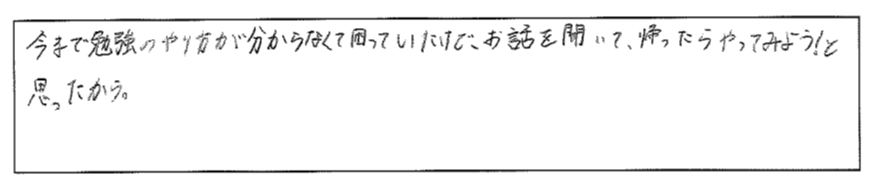 今まで勉強のやり方が分からなくて困っていたけど、お話を聞いて、帰ったらやってみよう!と
思ったから。